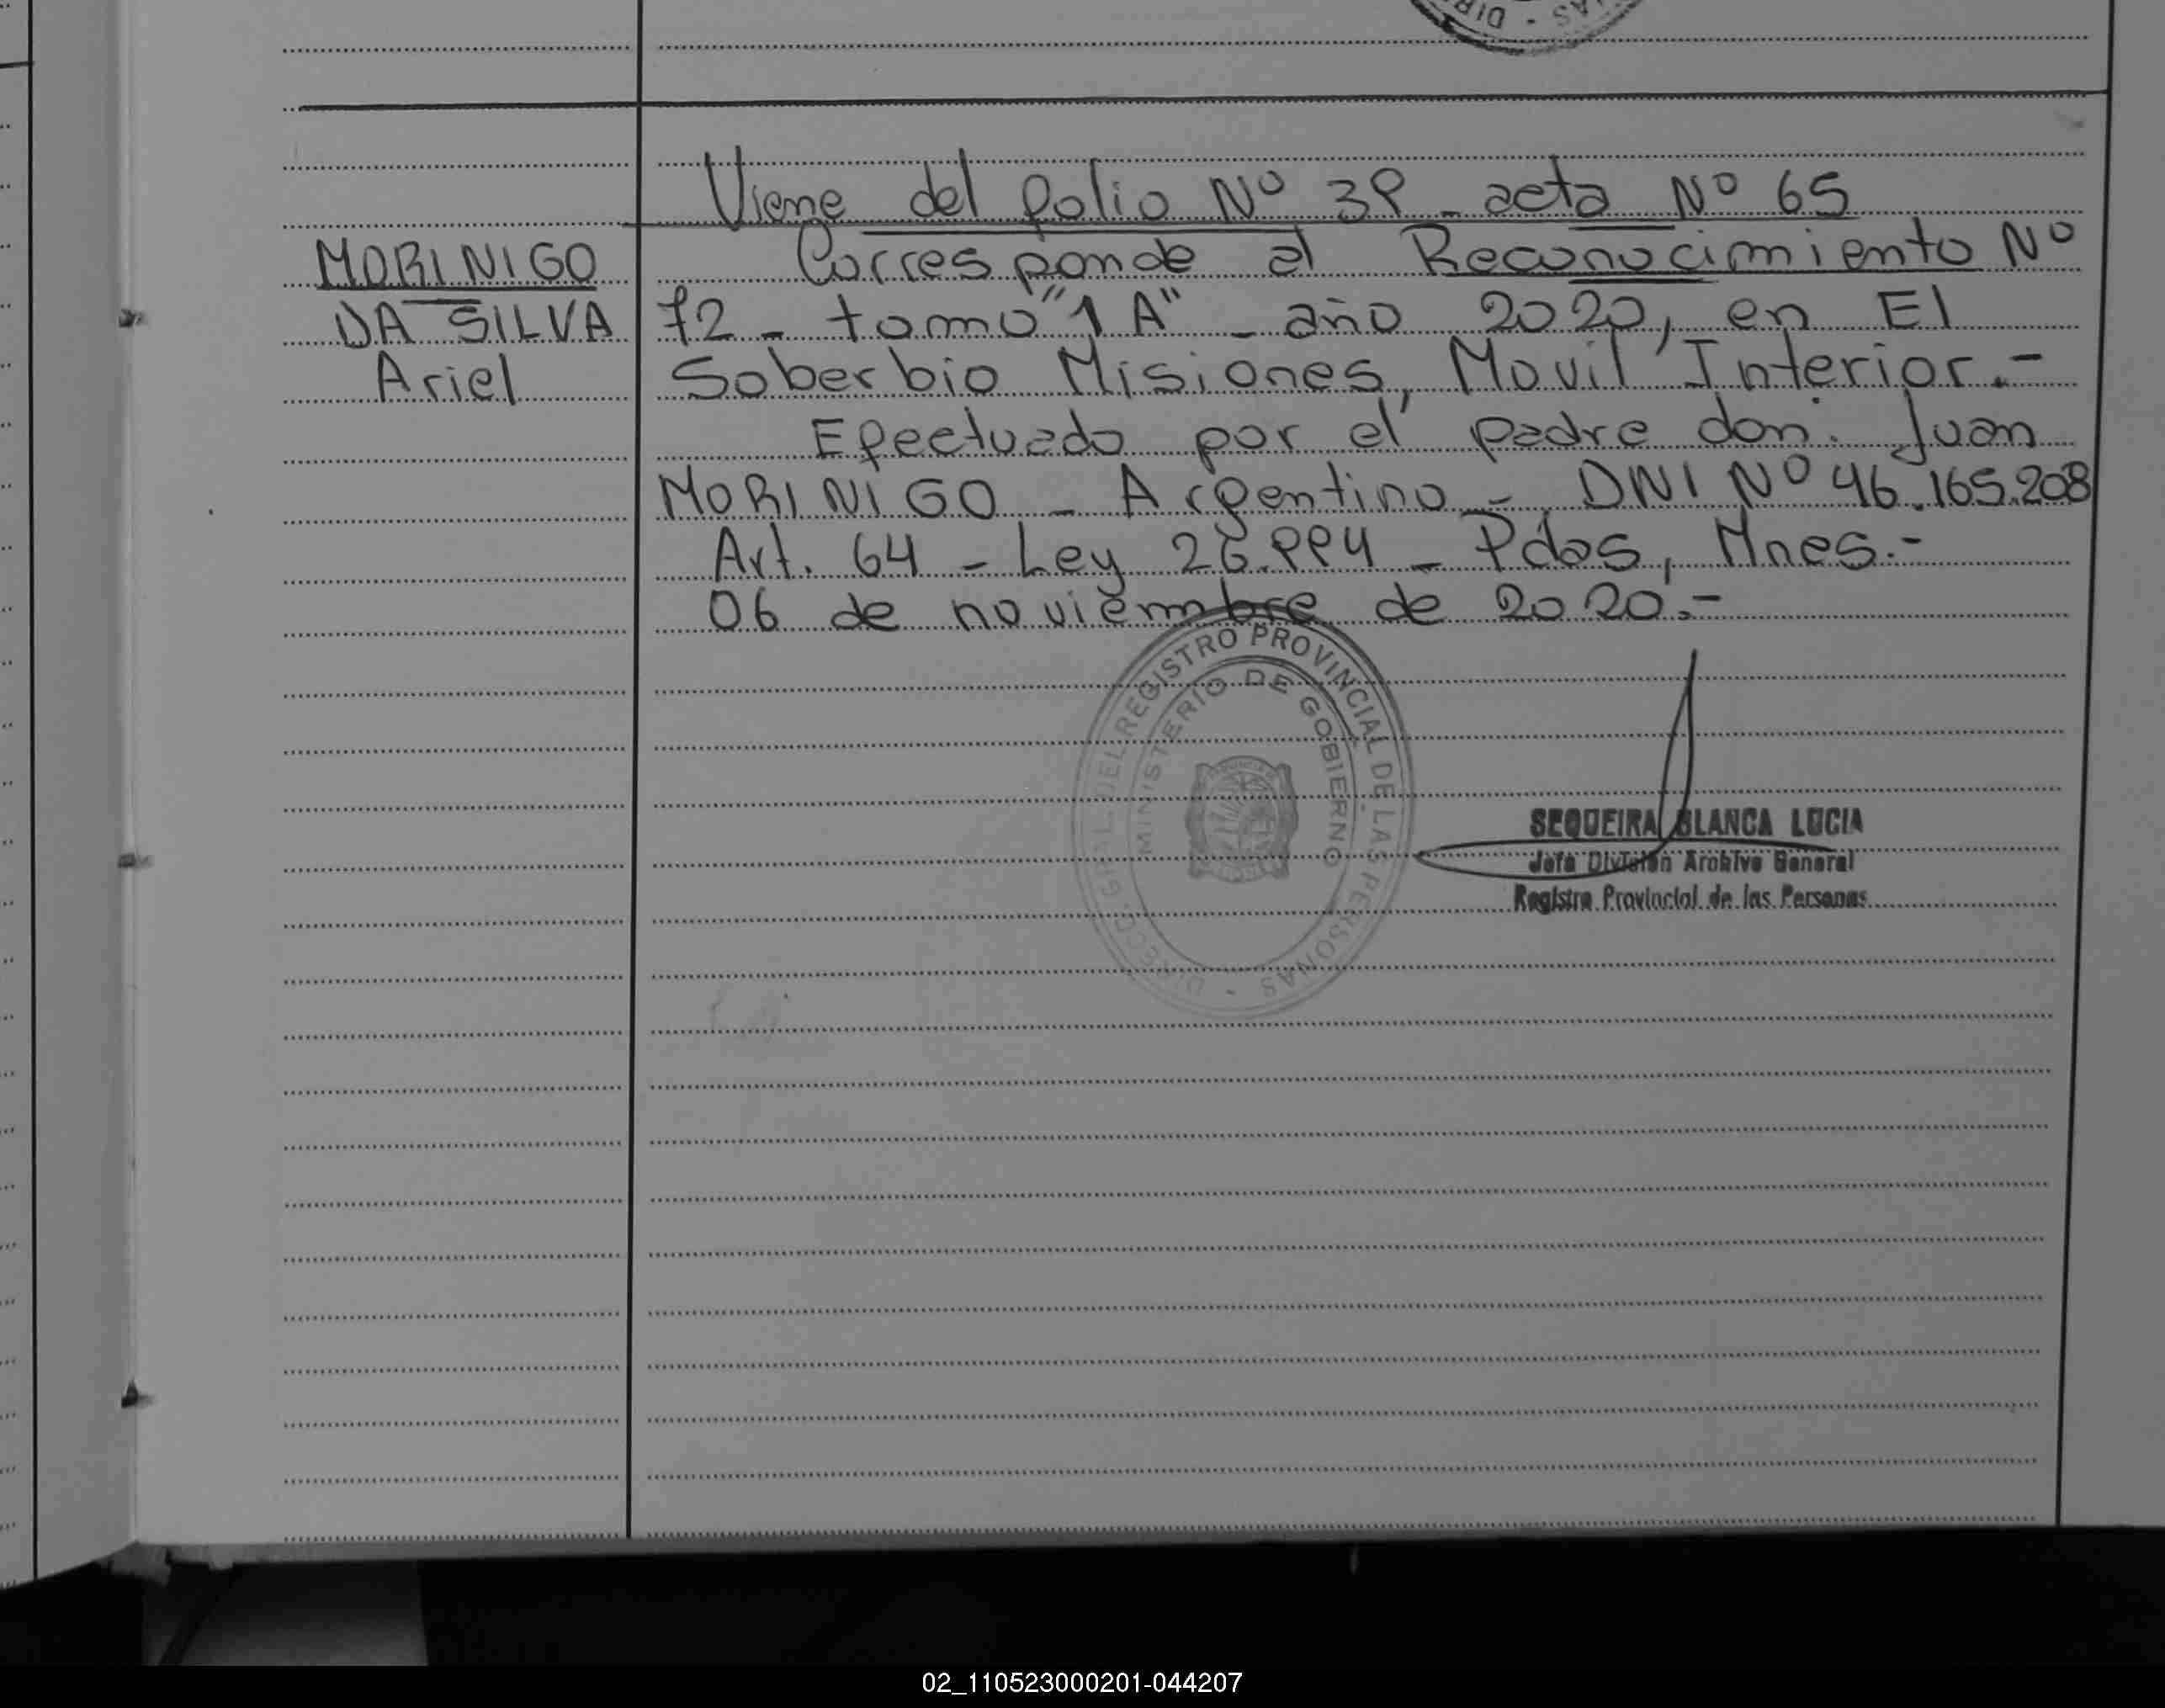 DIR - SAN
Viene del folio Nº 39 - acta Nº 65
MORINIGO
Corresponde al Reconocimiento Nº
DA SILVA
72 - tomo "1 A" - año 2020, en El
Ariel
Soberbio Misiones, Movil Interior.-
Efectuado por el padre don: Juan
MORINIGO - Argentino - DNI Nº 46.165.208
Art. 64 - Ley 26.994 - Pdas, Mnes.-
06 de noviembre de 2020.-
DIRECC. GRAL. DEL REGISTRO PROVINCIAL DE LAS PERSONAS -
MINISTERIO DE GOBIERNO
SEQUEIRA BLANCA LUCIA
Jefa División Archivo General
Registro Provincial de las Personas
02_110523000201-044207